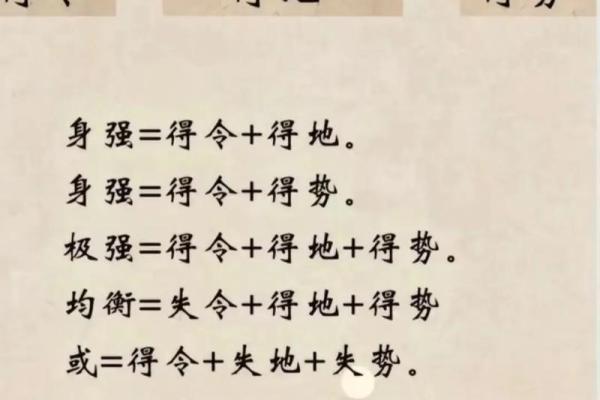 身强=得令+得地。
身强=得令+得势。
极强=得令+得地+得势。
均衡=失令+得地+得势
或=得令+失地+失势。